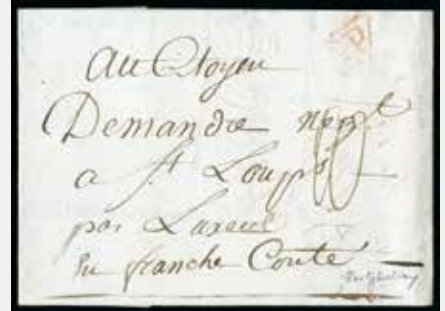 au Citoyen
Demandre negt
a st Loup
par Luxeul
En franche Comte